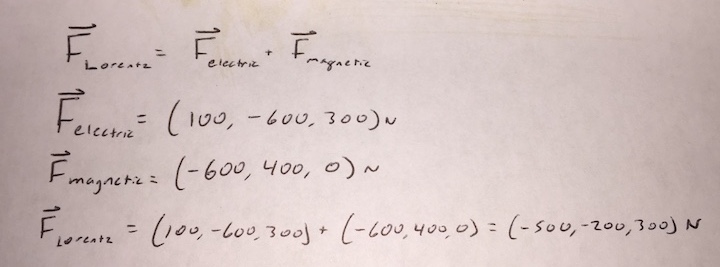 F⃗Lorentz = F⃗electric + F⃗magnetic
F⃗electric = (100, -600, 300) N
F⃗magnetic = (-600, 400, 0) N
F⃗Lorentz = (100, -600, 300) + (-600, 400, 0) = (-500, -200, 300) N